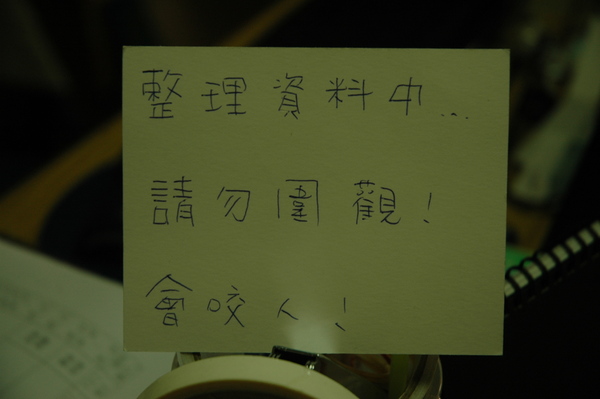 整理資料中...
請勿圍觀!
會咬人!